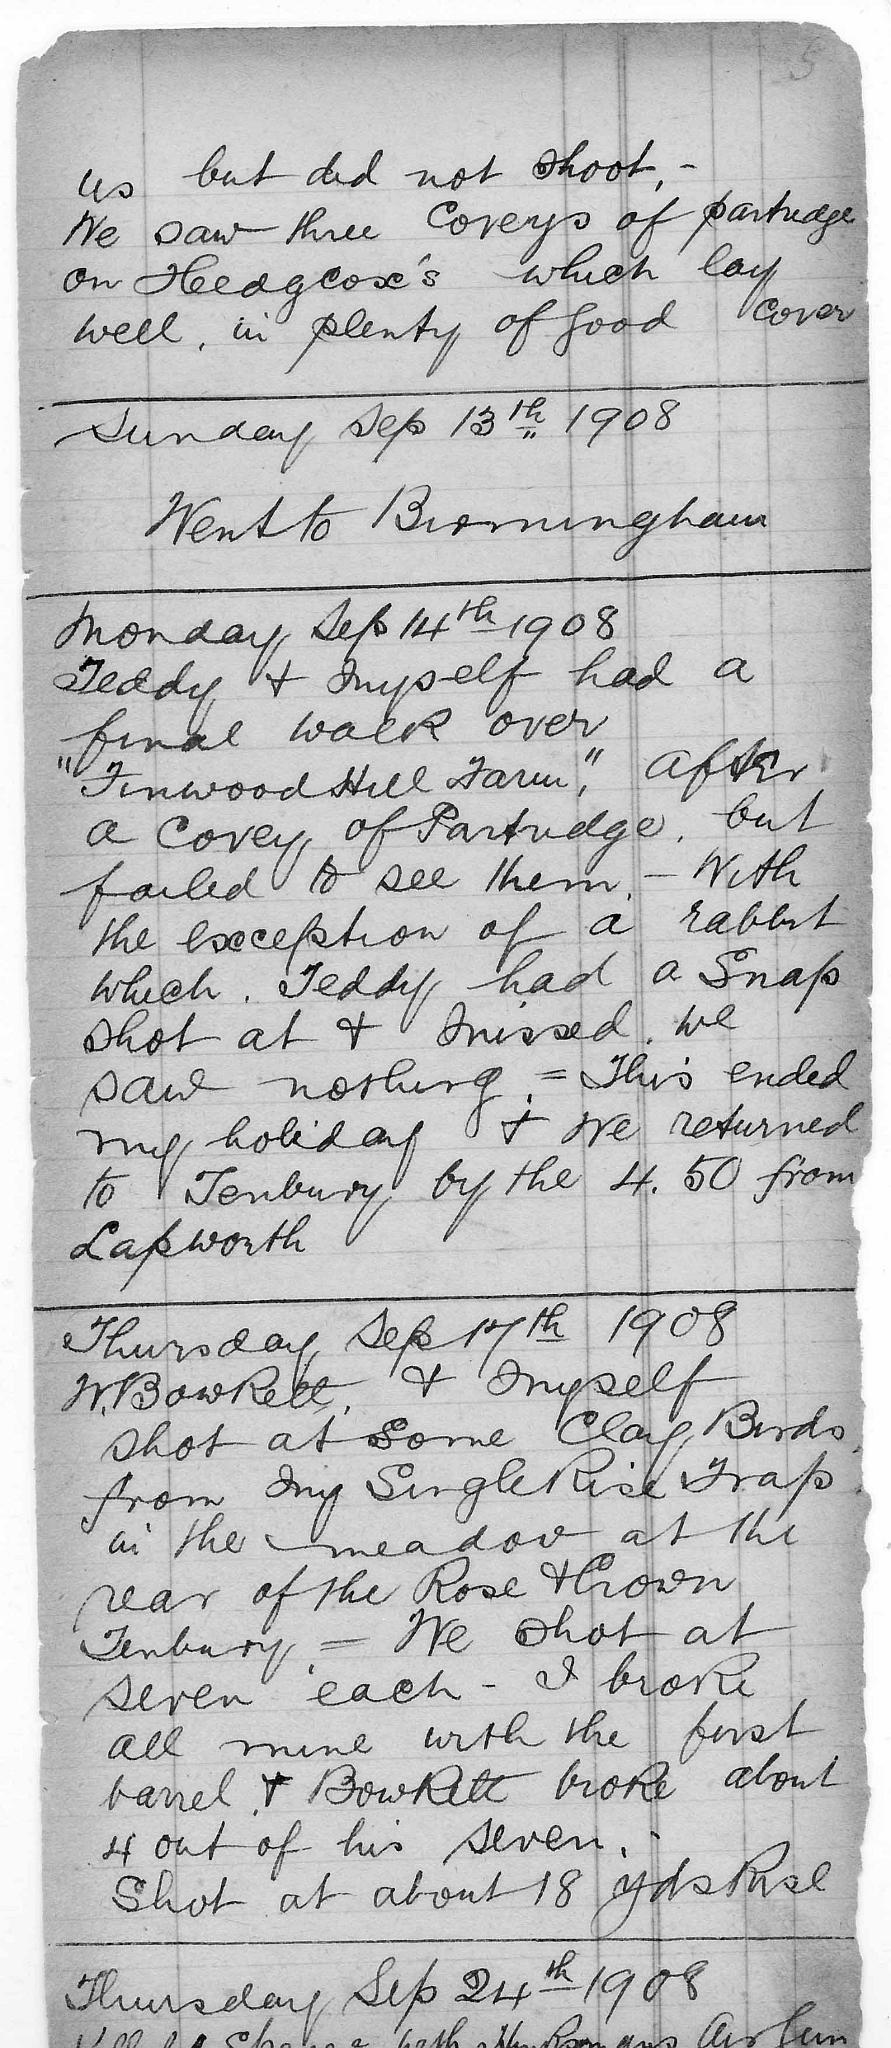 5
us but did not shoot. -
We saw three Coveys of partridge
on Hedgcox's which lay
well. in plenty of good cover
Sunday Sep 13th 1908
Went to Birmingham
Monday Sep 14th 1908
Teddy & Myself had a
final walk over
"Finwood Hill Farm," after
a Covey of Partridge. but
failed to see them. - With
the exception of a rabbit
which. Teddy had a Snap
shot at & missed. we
saw nothing. = This ended
my holiday & We returned
to Tenbury by the 4.50 from
Lapworth
Thursday Sep 17th 1908
W. Bowkett. & Myself
shot at Some Clay Birds.
from My Single Rise Trap
in the meadow at the
rear of the Rose & Crown
Tenbury. = We shot at
seven each - I broke
all mine with the first
barrel. & Bowkett broke about
4 out of his seven. -
Shot at about 18 yds Rise
Thursday Sep 24th 1908
with Air Gun